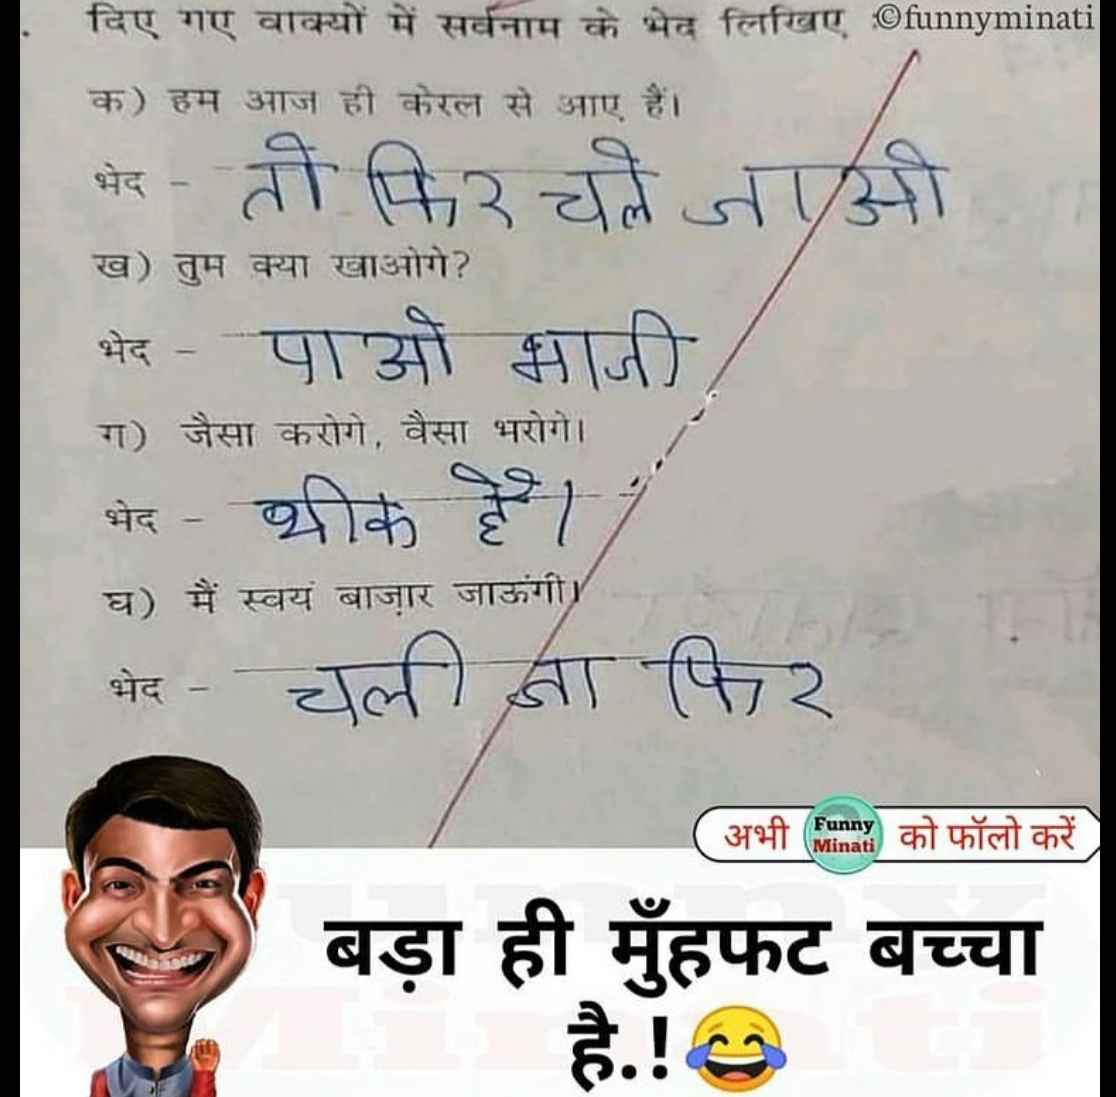 दिए गए वाक्यों में सर्वनाम के भेद लिखिए ©funnyminati
क) हम आज ही केरल से आए हैं।
भेद - तो फिर चले जाओ
ख) तुम क्या खाओगे?
भेद - पाओ भाजी
ग) जैसा करोगे, वैसा भरोगे।
भेद - थीक है।
घ) मैं स्वयं बाज़ार जाऊंगी।
भेद - चली जा फिर
अभी Funny Minati को फॉलो करें
बड़ा ही मुँहफट बच्चा
है.!😂
Funny
Minati